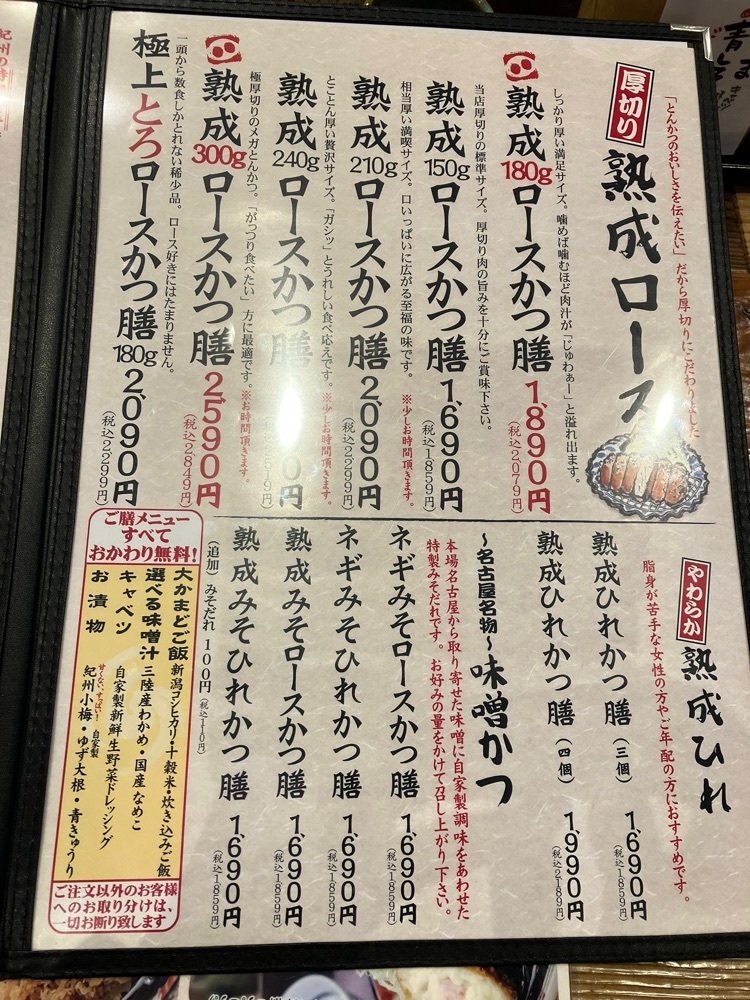 「とんかつのおいしさを伝えたい」だから厚切りにこだわりました
厚切り
熟成ロース
しっかり厚い満足サイズ。噛めば噛むほど肉汁が「じゅわぁー」と溢れ出ます。
熟成180gロースかつ膳 1,890円
(税込2,079円)
当店厚切りの標準サイズ。厚切り肉の旨みを十分にご賞味下さい。
熟成150gロースかつ膳 1,690円
(税込1,859円)
相当厚い満喫サイズ。口いっぱいに広がる至福の味です。※少しお時間頂きます。
熟成210gロースかつ膳 2,090円
(税込2,299円)
とことん厚い贅沢サイズ。「ガシッ」とうれしい食べ応えです。※少しお時間頂きます。
熟成240gロースかつ膳
極厚切りのメガとんかつ。「がっつり食べたい」方に最適です。※お時間頂きます。
熟成300gロースかつ膳 2,590円
(税込2,849円)
一頭から数食しかとれない稀少品。ロース好きにはたまりません。
極上とろロースかつ膳180g 2,090円
(税込2,299円)
やわらか
熟成ひれ
脂身が苦手な女性の方やご年配の方におすすめです。
熟成ひれかつ膳(三個) 1,690円
(税込1,859円)
熟成ひれかつ膳(四個) 1,990円
(税込2,189円)
〜名古屋名物〜味噌かつ
本場名古屋から取り寄せた味噌に自家製調味をあわせた
特製みそだれです。お好みの量をかけて召し上がり下さい。
ネギみそロースかつ膳 1,690円
(税込1,859円)
ネギみそひれかつ膳 1,690円
(税込1,859円)
熟成みそロースかつ膳 1,690円
(税込1,859円)
熟成みそひれかつ膳 1,690円
(税込1,859円)
(追加)みそだれ 100円(税込110円)
ご膳メニュー
すべて
おかわり無料!
大かまどご飯 新潟コシヒカリ・十穀米・炊き込みご飯
選べる味噌汁 三陸産わかめ・国産なめこ
キャベツ 自家製新鮮生野菜ドレッシング
お漬物 紀州小梅・ゆず大根・青きゅうり
自家製
ご注文以外のお客様
へのお取り分けは、
一切お断り致します